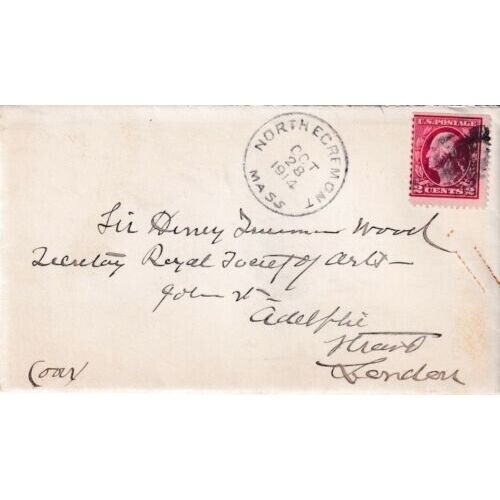 U.S. POSTAGE
2 CENTS 2
NORTH EGREMONT
OCT
28
1914
MASS
Sir Henry Trueman Wood
Secretary Royal Society of Arts
John St
Adelphi
Strand
London